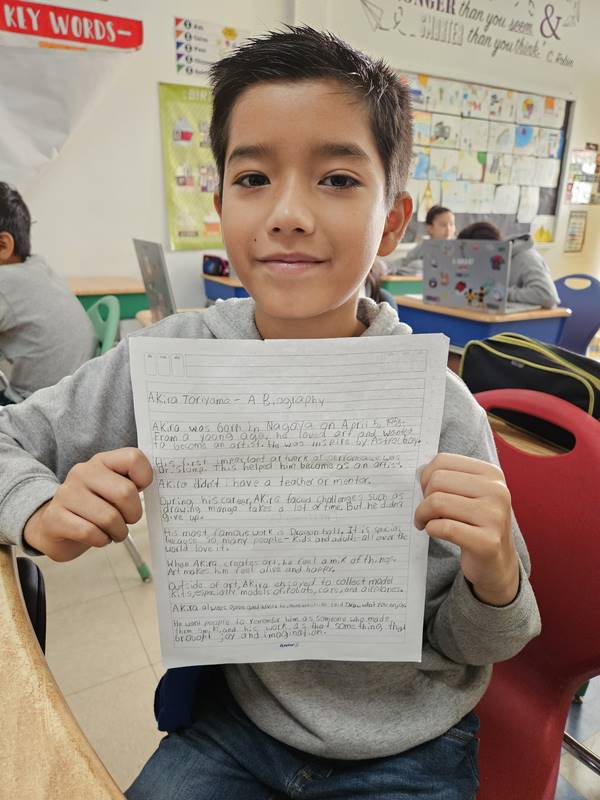 KEY WORDS—
than you seem &
than you think."
Akira Toriyama - A Biography
Akira was born in Nagaya on April 5,
From a young age, he loved art and wanted
to become an artist. He was inspire by Astroboy.
His first important artwork of performance was
Dr. slump. This helped him become as an artist.
Akira didn't have a teather or mentor.
During his career, Akira faced challenges such as
drawing manga takes a lot of time. But he didn't
give up.
His most famous work is Dragon ball. It is special
because so many people - kids and adults - all over the
world love it.
When Akira creates art, he feel a mik of things.
Art makes him feel alive and happy.
Outside of art, Akira enjoyed to collect model
Kits, especially models of robots, cars, and airplanes.
Akira always
He want people to remember him as someone who made
them smile, and his work as that something that
brought joy and imagination.